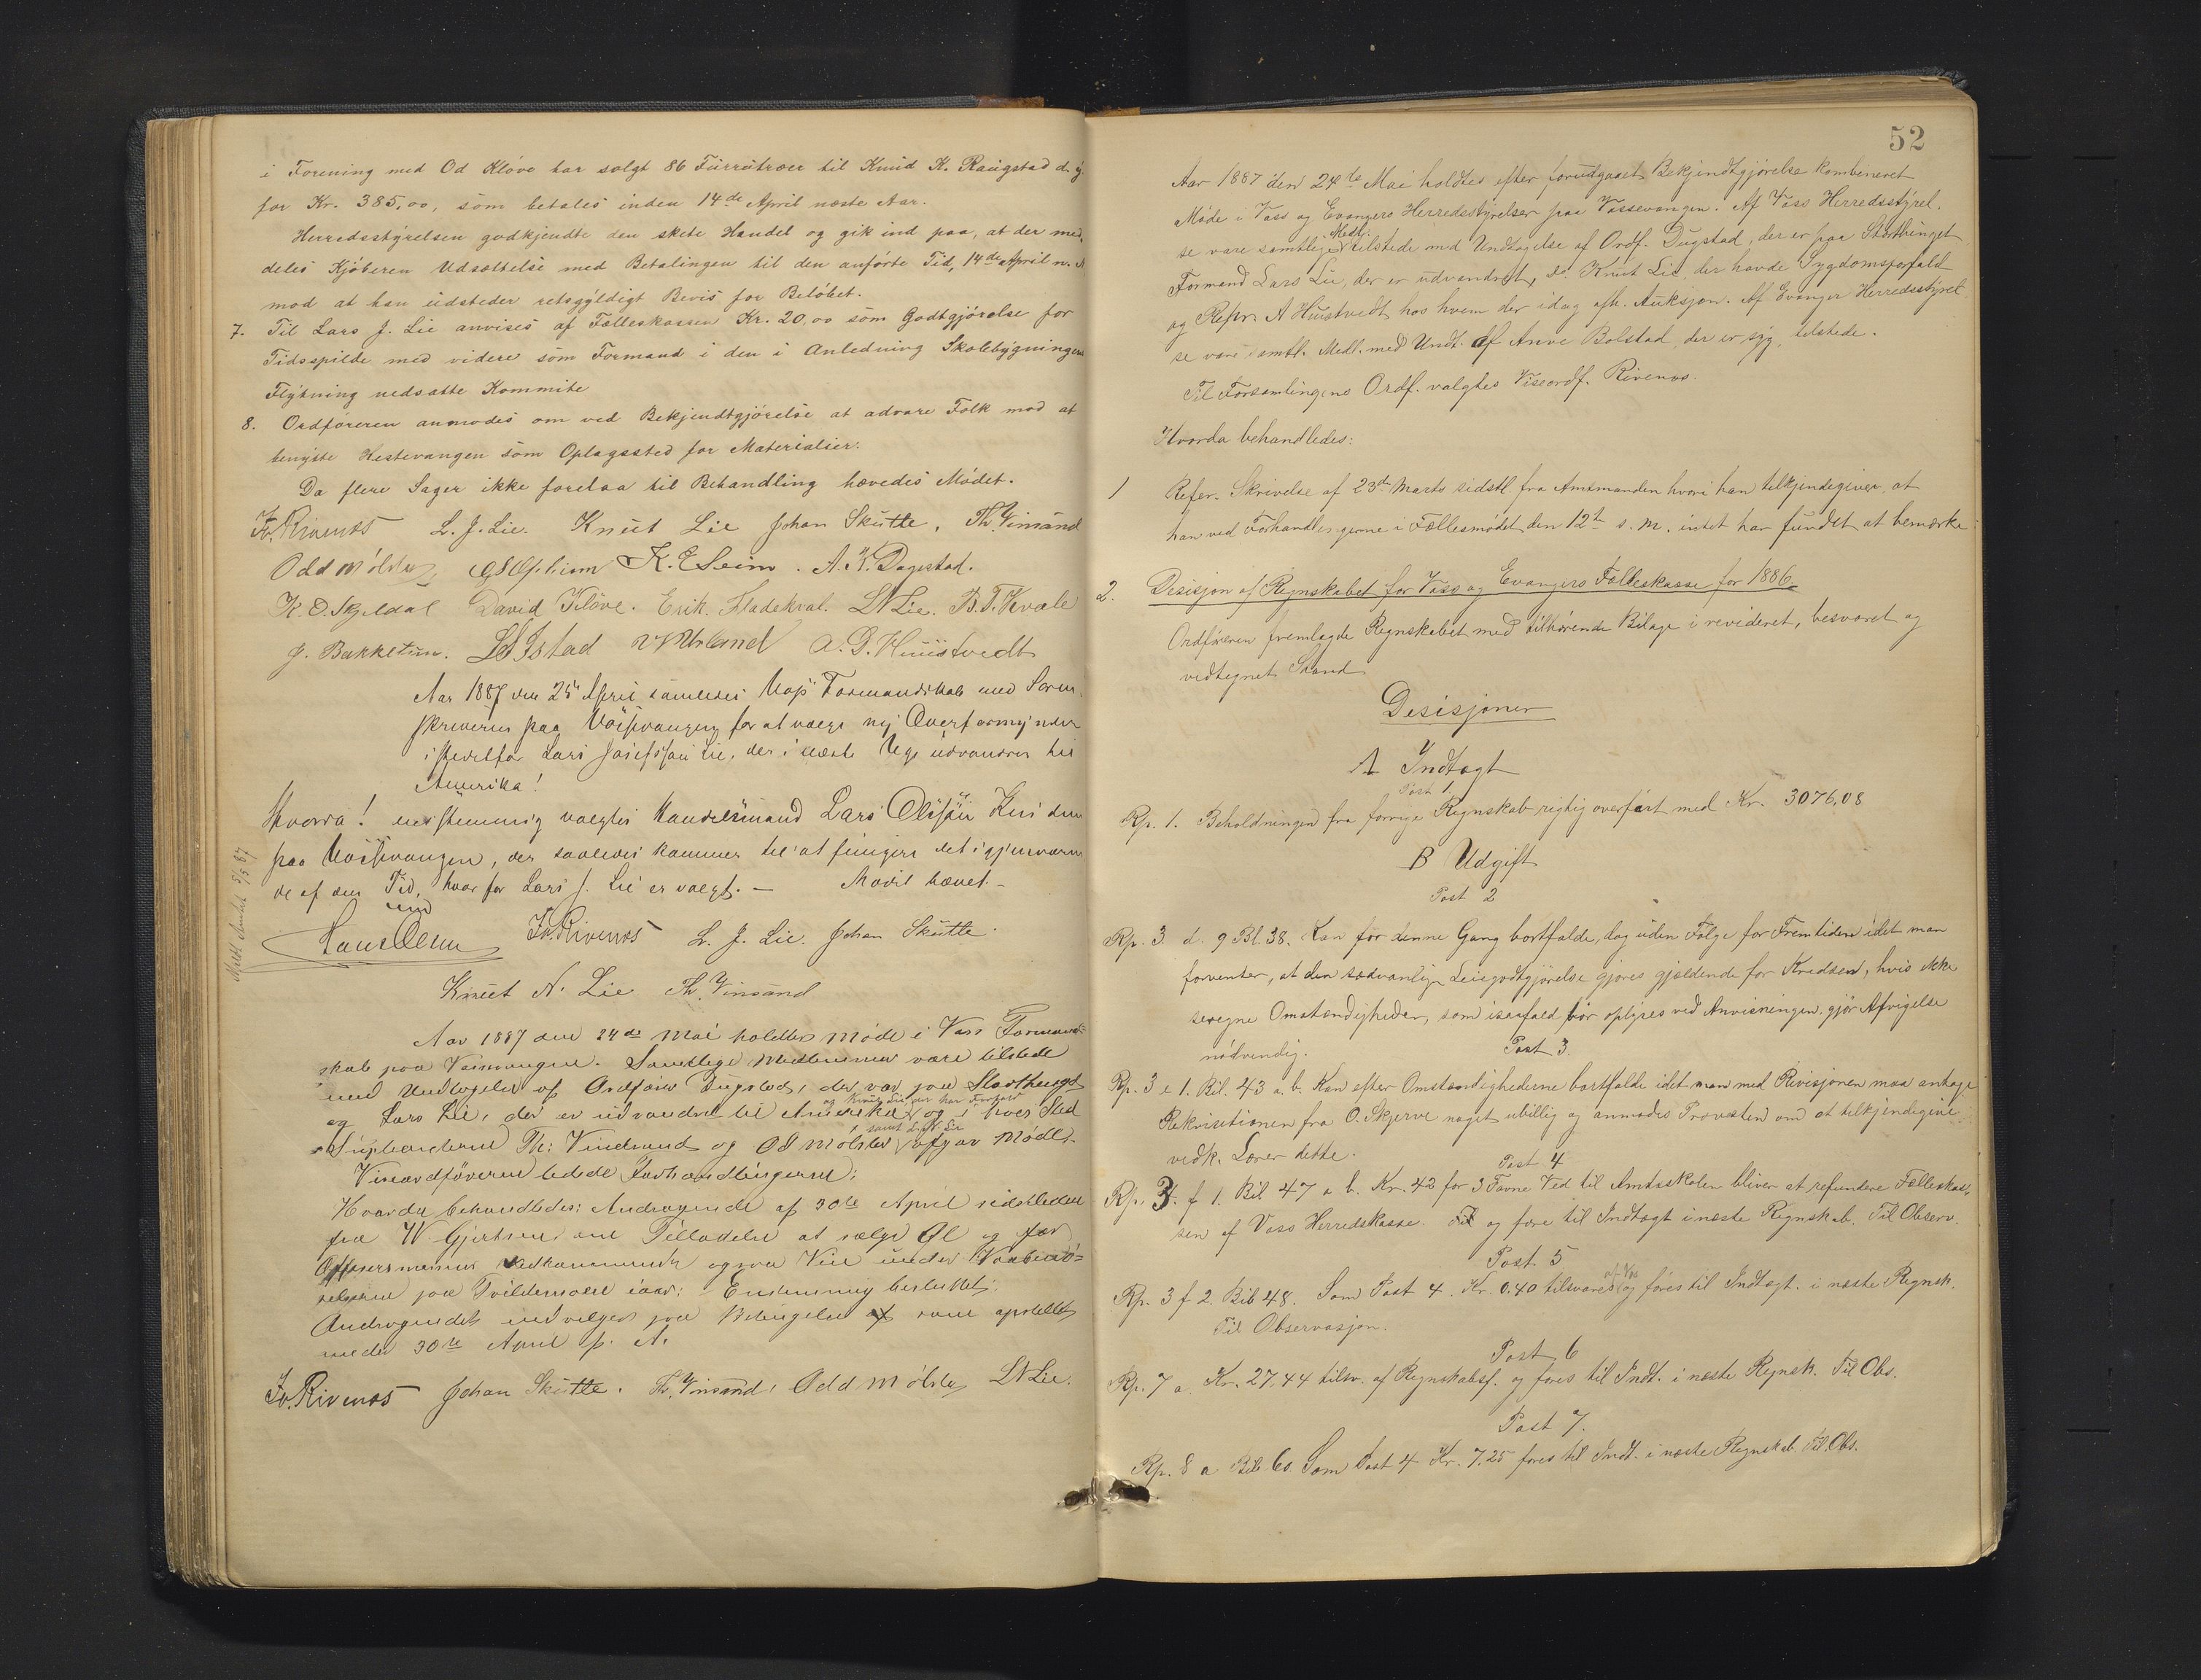 i Forening med Od Klöve har solgt 86 Fürrütræer til Knud K. Raugstad d. y
for Kr. 385,00, som betales inden 14de April næste Aar.
Herredsstýrelsen godkjendte den skete Handel og gik ind paa, at der med-
deles Kjöberen Udsættelse med Betalingen til den anförte Tid, 14de April n. A
mod at han udsteder retsgýldigt Bevis for Belöbet.
7. Til Lars J. Lie anvises af Fælleskassen Kr. 20,00 som Godtgjörelse for
Tidsspilde med videre som Formand i den i Anledning Skolebýgningens
Flýtning nedsatte Kommite
8. Ordföreren anmodes om ved Bekjendtgjörelse at advare Folk mod at
benýtte Hestevangen som Oplagssted for Materialier.
Da flere Sager ikke forelaa til Behandling hævedes Mödet.
Fr. Rivenæs L. J. Lie. Knut Lie Johan Skutle. Th. Vinsand
Odd Mölster K. E Seim. A. K. Dagestad.
K. O. Skjeldal David Klöve. Erik Fladekval. L N Lie. B. T. Kvale
J. Bakketun. L Istad A. D. Huustvedt
Aar 1887 den 25de April samledes Voss Formandskab med Soren-
skriveren paa Vossevangen for at vælge ný Overformýnder
istedetfor Lars Josefssøn Lie, der i næste Uge udvandrer til
Amerika!
Hvorda! enstemmig valgtes Handelsmand Lars Olssøn
paa Vossevangen, der saaledes kommer til at fungere det igjenværen
de af den Tid, hvorfor Lars J. Lie er valgt. — Mödet hævet. —
Fr. Rivenæs L. J. Lie. Johan Skutle.
Knut N. Lie Th. Vinsand
Aar 1887 den 24de Mai holdtes Möde i Voss Formand-
skab paa Vossevangen. Samtlige Medlemmer vare tilstede
med Undtagelse af Ordförer Dugstad, der var paa Storthinget
og Knut Lie der har Forfald
og Lars Lie, der er udvandret til Amerika og i hvers Sted
samt L. N. Lie
Suppleanterne Th: Vindsand og Od Mölster afgav Möde.
Viseordföreren ledede Forhandlingerne:
Hvorda behandledes: Andragende af 30te April sidstleden
fra W Gjertsen om Tilladelse at sælge Øl og for
Offisersmessen vedkommende ogsaa Vin under Vaabenö-
velserne paa Tvildemoen iaar: Enstemmig besluttet:
Andragendet indvilges paa Betingelse som opstillet
under 30te April f. A.
Fr. Rivenæs Johan Skutle. Th. Vinsand, Odd Mölster L N Lie.
52
Aar 1887 den 24de Mai holdtes efter forudgaaet Bekjendtgjörelse kombineret
Möde i Voss og Evangers Herredsstýrelser paa Vossevangen. Af Voss Herredsstýrel-
Medl.
se vare samtlige tilstede med Undtagelse af Ordf. Dugstad, der er paa Storthinget
Formand Lars Lie, der er udvandret, do Knut Lie, der havde Sygdomsforfald
og Repr. A Huustvedt hos hvem der idag afh. Auksjon. Af Evanger Herredsstýrel-
se vare samtl. Medl. med Undt. af Anve Bolstad, der er sýg, tilstede.
Til Forsamlingens Ordf. valgtes Viseordf. Rivenæs.
Hvorda behandledes:
1 Refer. Skrivelse af 23de Marts sidstl. fra Amtmanden hvori han tilkjendegiver, at
han ved Forhandlingerne i Fællesmödet den 12te s. M. intet har fundet at bemærke
2. Desisjon af Regnskabet for Voss og Evangers Fælleskasse for 1886
Ordföreren fremlagde Regnskabet med tilhörende Bilage i revideret, besvaret og
vedtegnet Stand
Desisjoner
A Indtægt
Post 1
Rp. 1. Beholdningen fra forrige Regnskab rigtig overfört med Kr. 3076,08
B Udgift
Post 2
Rp. 3. d. 9 Bl. 38. Kan for denne Gang bortfalde, dog uden Fölge for Fremtiden idet man
forventer, at den sædvanlige Leiegodtgjörelse gjöres gjældende for Kredsen, hvis ikke
seregne Omstændigheder, som isaafald bör oplýses ved Anvisningen, gjör Afvigelse
nödvendig.
Post 3.
Rp. 3 e 1. Bil. 43 a. b. Kan efter Omstændighederne bortfalde idet man med Rivisjonen maa antage
Rekvisitionen fra O. Skjerve noget ubillig og anmodes Provsten om at tilkjendegive
vedk. Lærer dette.
Post 4
Rp. 3. f 1. Bil 47 a b. Kr. 42 for 3 Favne Ved til Amtsskolen bliver at refundere Fælleskas-
sen af Voss Herredskasse. og före til Indtægt i næste Regnskab. Til Observ.
Post 5
af Vss
Rp. 3 f 2. Bil 48. Som Post 4. Kr. 0.40 tilsvares og föres til Indtægt. i næste Regnsk.
Til Observasjon.
Post 6
Rp. 7 a. Kr. 27,44 tilsv. af Regnskabsf. og föres til Indt. i næste Regnsk. Til Obs.
Post 7.
Rp. 8 a Bil 60. Som Post 4 Kr. 7.25 föres til Indt. i næste Regnskab. Til Obs.